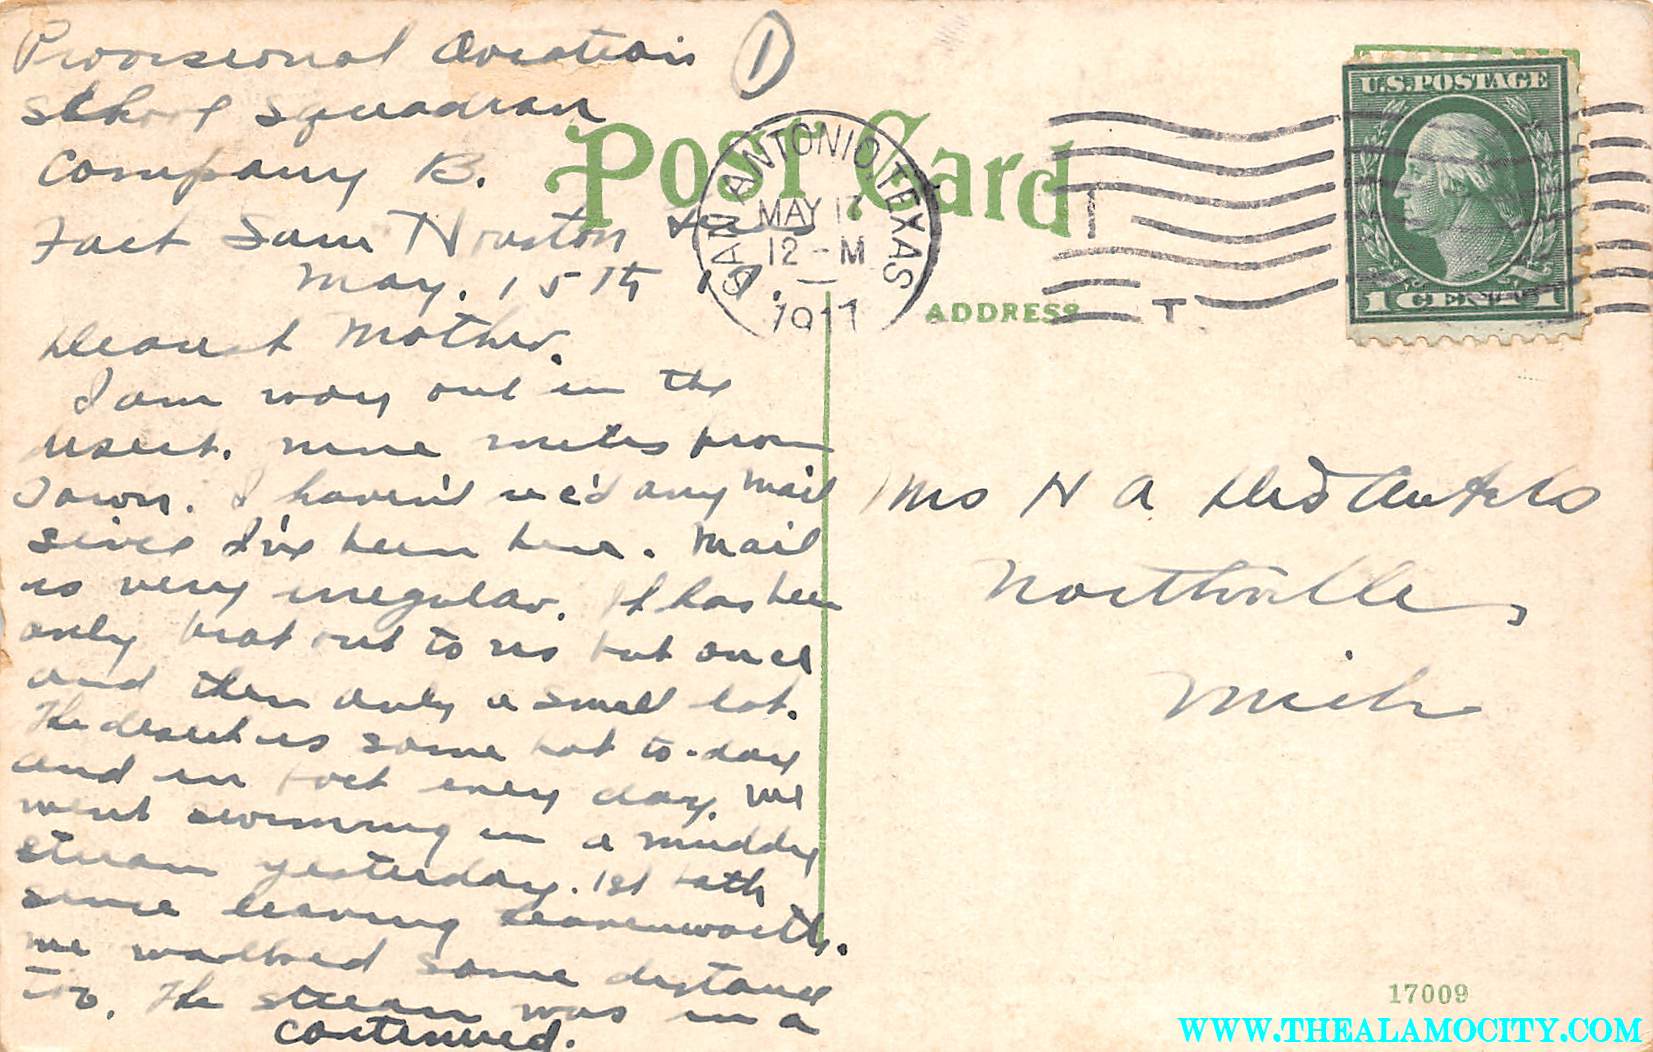 Provisional Aviation
School Squadron
Company B.
Fort Sam Houston Texas
May. 15th
Dearest Mother.
I am way out in the
desert. nine miles from
Town. I haven't rec'd any mail
since I've been here. Mail
is very irregular. It has been
only brot out to us but once
and then only a small lot.
The desert is some hot to-day
and in fact every day. We
went swimming in a muddy
stream yesterday. 1st bath
since leaving Leavenworth.
we walked some distance
too. The stream was in a
continued.
1
POST CARD
SAN ANTONIO, TEXAS
MAY 17
12-M
1917
U.S. POSTAGE
1 CENT 1
ADDRESS
Mrs H A
Northville,
Mich
17009
WWW.THEALAMOCITY.COM